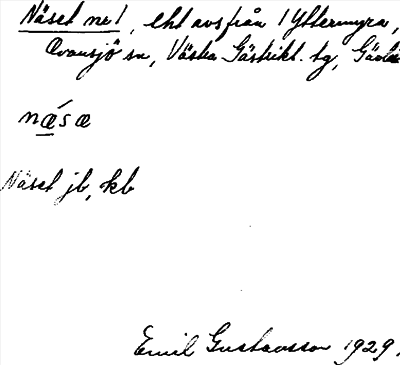 Näset nr 1, eht avs från 1 Yttermyra,
Ovansjö sn, Västra Gästrikl. tg, Gävle
næ´sæ
Näset jb, kb
Emil Gustavsson 1929.